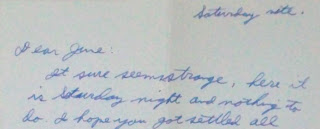 Saturday nite.
Dear June:
It sure seems strange, here it
is Saturday night and nothing to
do. I hope you got settled all